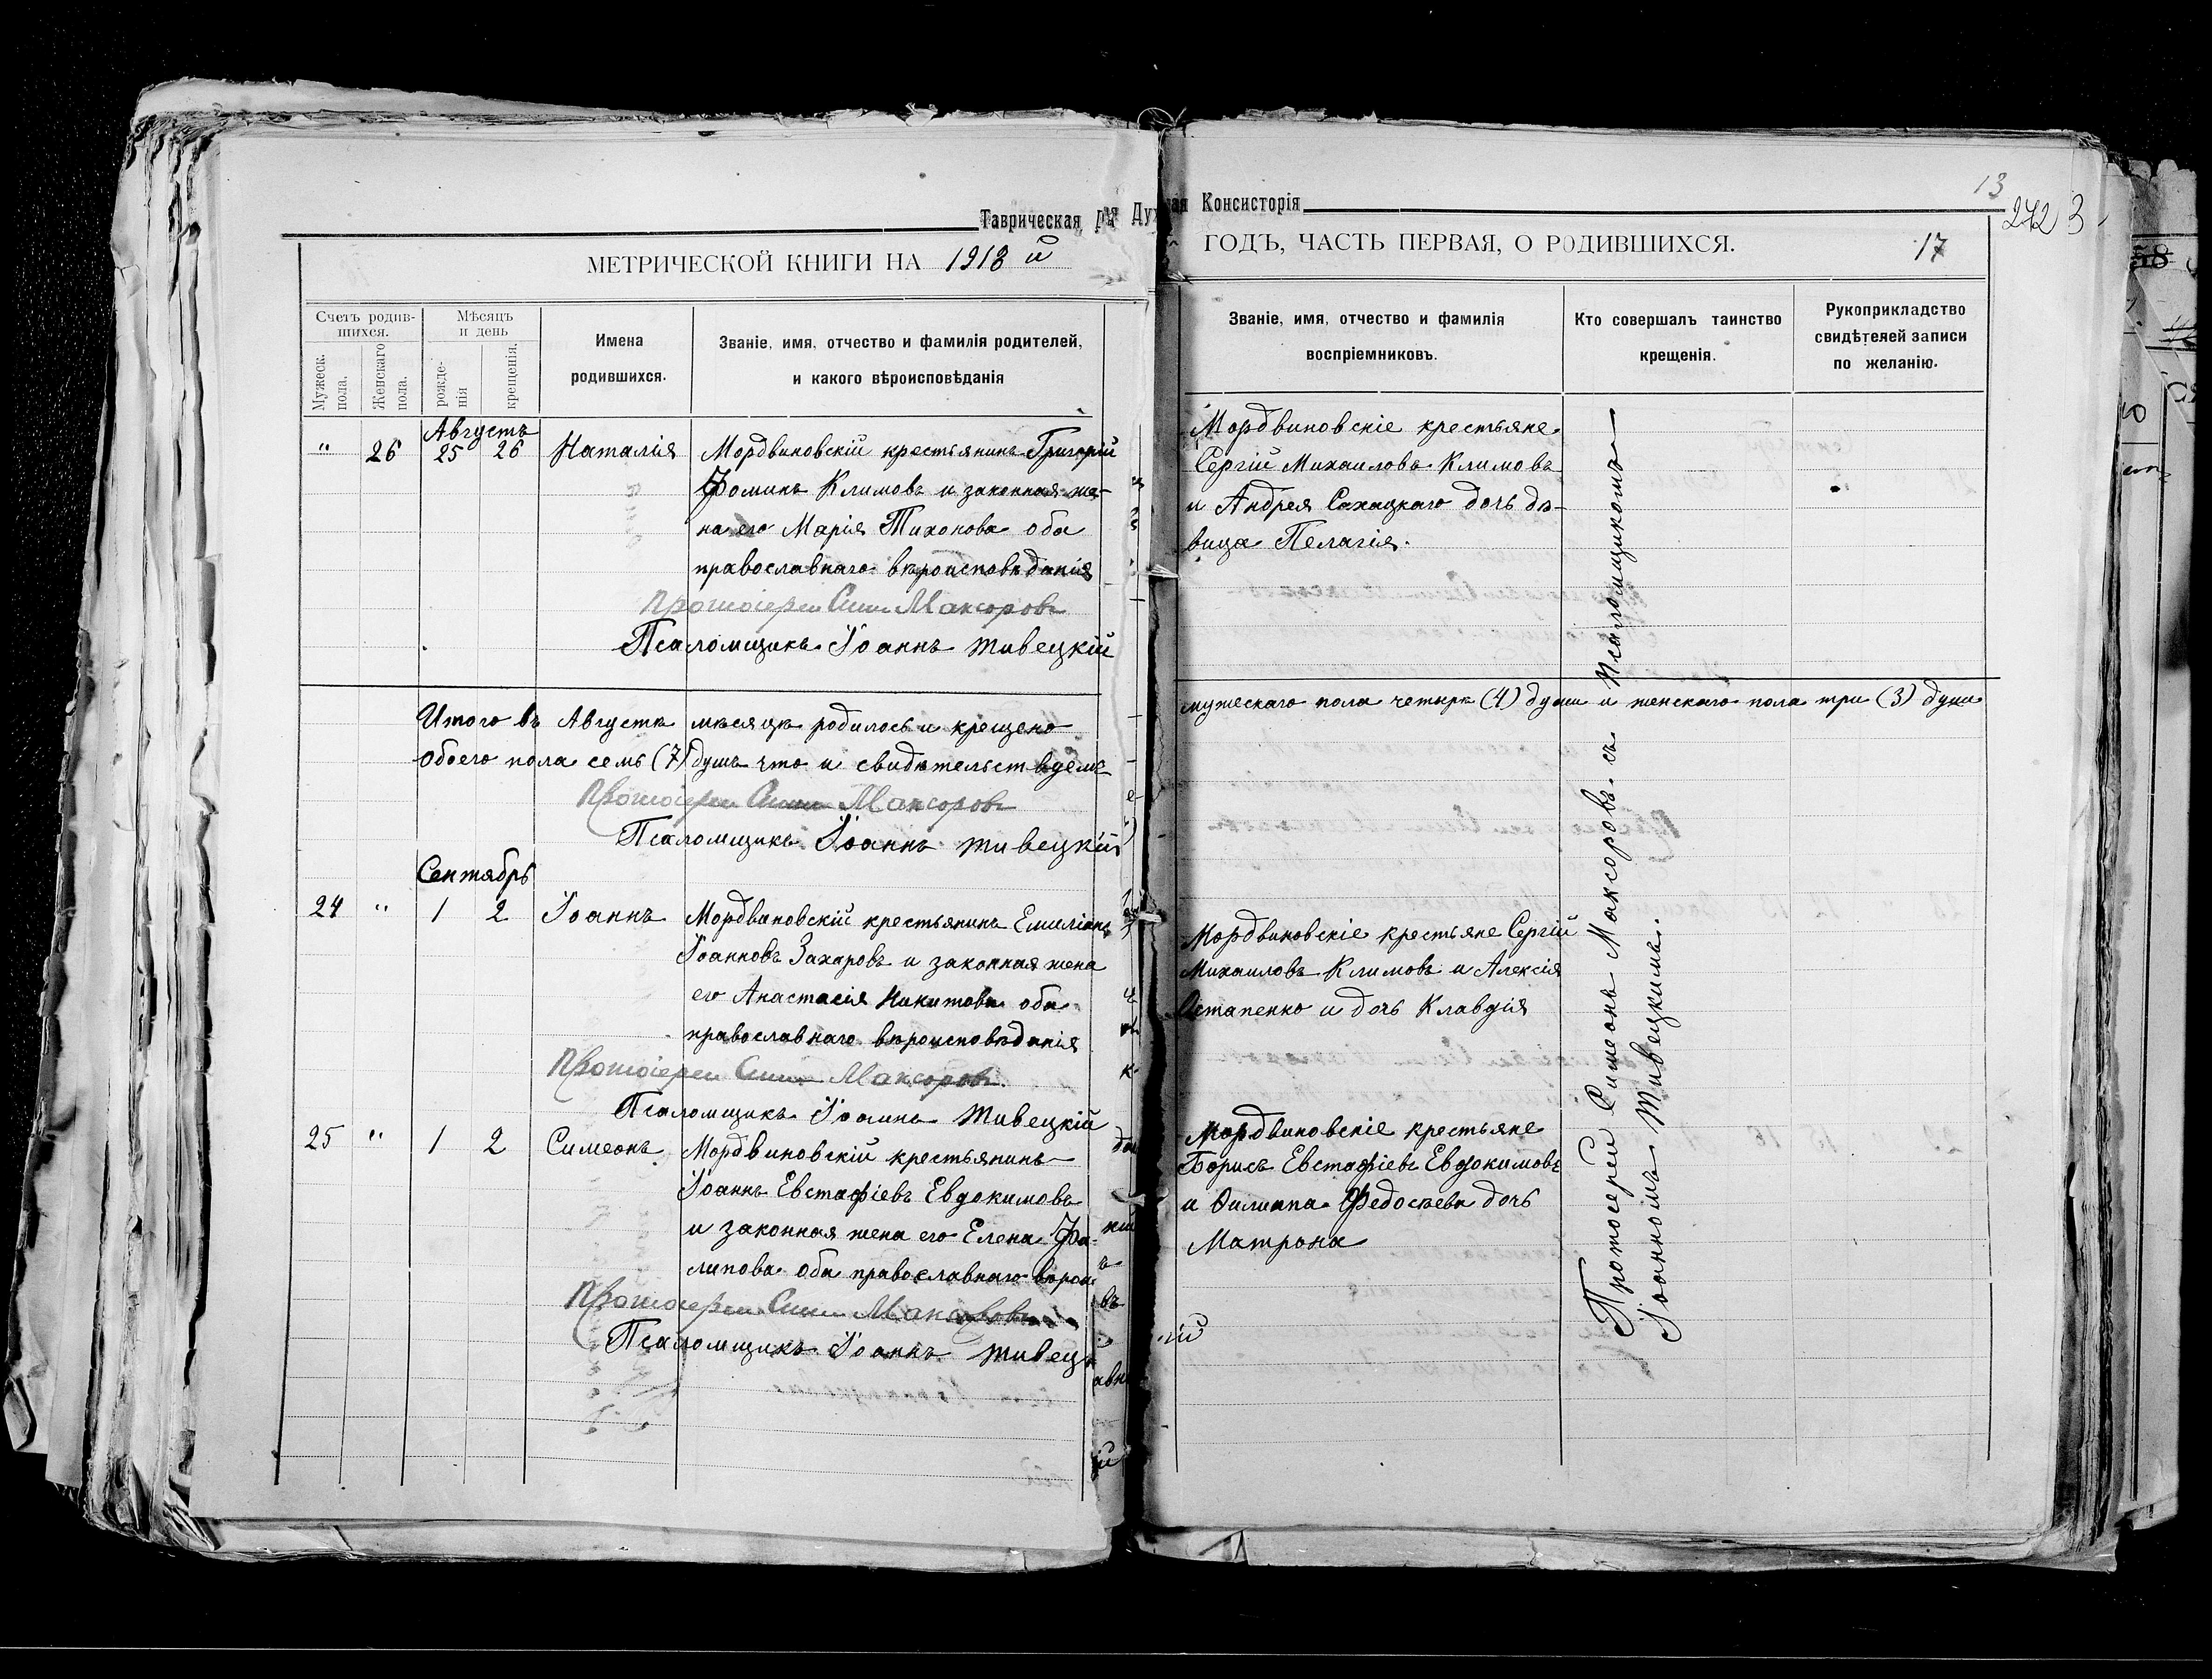 Таврическая Ду
МЕТРИЧЕСКОЙ КНИГИ НА 1918 й
Счетъ родив-
шихся.
Мужеск.
пола.
Женскаго
пола.
Мѣсяцъ
и день
рожде-
нія
крещенія.
Имена
родившихся.
Званіе, имя, отчество и фамилія родителей,
и какого вѣроисповѣданія
Августъ
" 26 25 26 Наталія Мордвиновскій крестьянинъ Григорій
Фоминъ Климовъ и законная же-
на его Марія Тихонова оба
православнаго вѣроисповѣданія
Протоіерей Сим Максоровъ
Псаломщикъ Іоаннъ Живецкій
Итого въ Августѣ мѣсяцѣ родилось и крещено
обоего пола семь (7) душъ что и свидѣтельствуемъ
Протоіерей Сим Максоровъ
Псаломщикъ Іоаннъ Живецкій
Сентябрь
24 " 1 2 Іоаннъ Мордвиновскій крестьянинъ Емиліанъ
Іоанновъ Захаровъ и законная жена
его Анастасія Никитова оба
православнаго вѣроисповѣданія
Протоіерей Сим Максоровъ.
Псаломщикъ Іоаннъ Живецкій
25 " 1 2 Симеонъ Мордвиновскій крестьянинъ
Іоаннъ Евстафіевъ Евдокимовъ
и законная жена его Елена Фи-
липова оба православнаго вѣрои
Протоіерей Сим Максоровъ
Псаломщикъ Іоаннъ Живец
Консисторія
13
272 3
ГОДЪ, ЧАСТЬ ПЕРВАЯ, О РОДИВШИХСЯ.
17
Званіе, имя, отчество и фамилія
воспріемниковъ.
Кто совершалъ таинство
крещенія.
Рукоприкладство
свидѣтелей записи
по желанію.
Мордвиновскіе крестьяне
Сергій Михаиловъ Климовъ
и Андрея Сахацкаго дочь дѣ-
вица Пелагія.
мужескаго пола четыре (4) души и женскаго пола три (3) души
Мордвиновскіе крестьяне Сергій
Михаиловъ Климовъ и Алексія
Остапенко и дочь Клавдія
Мордвиновскіе крестьяне
Борисъ Евстафіевъ Евдокимовъ
и Филипа Федосѣева дочь
Матрона
Протоіерей Симеонъ Максоровъ съ Псаломщикомъ
Іоанномъ Живецкимъ.